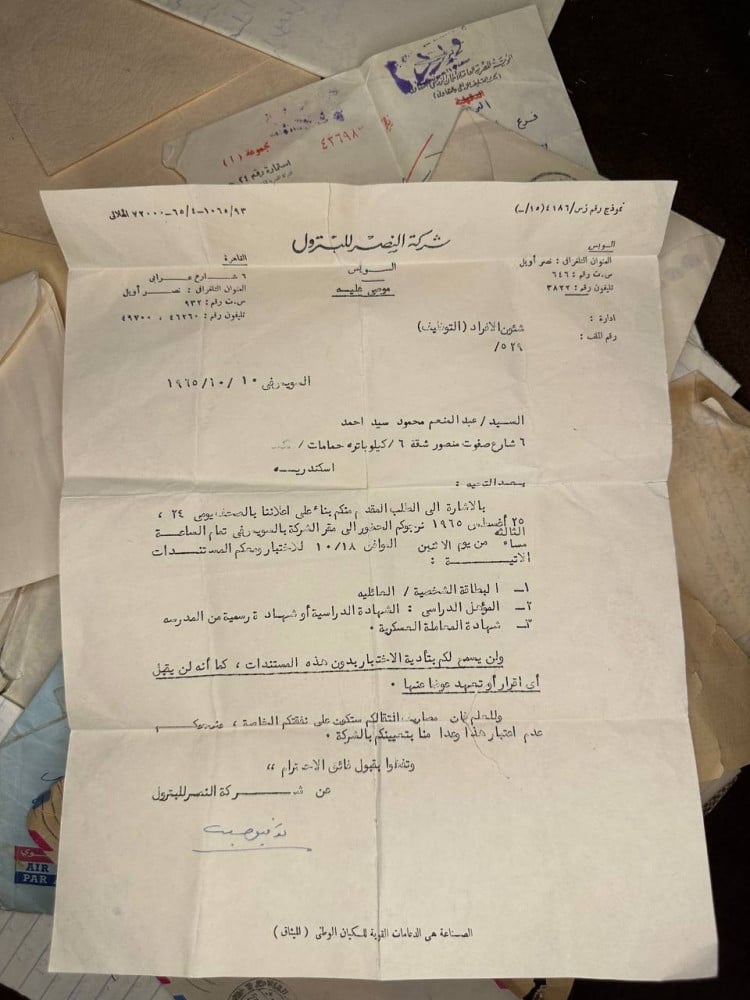 المؤسسة المصرية العامة
٤٣٦٩٨
مجموعة (١)
استمارة رقم ٢٤
فرع
نموذج رقم زس/٤١٨٦(١٥/-)
١٠٦٥/٩٣-٦٥/٤-٧٢٠٠٠ الهلالى
شركة النصر للبترول
السويس
موصى عليه
السويس
العنوان التلغرافى : نصر أويل
س.ت رقم : ٦٤٦
تليفون رقم : ٣٨٢٢
القاهرة
٦ شارع عرابى
العنوان التلغرافى : نصر أويل
س.ت رقم : ٩٣٢
تليفون رقم : ٤٦٢٦٠ ، ٤٩٧٠٠
ادارة : شئون الافراد (التوظيف)
رقم الملف : ٥٢٩/
السويس فى ١٠ /١٩٦٥/١٠
السيد/ عبد المنعم محمود سيد احمد
٦ شارع صفوت منصور شقة ٦ /كيلوباتره حمامات /
اسكندريـــه
بعد التحيه :
بالاشارة الى الطلب المقدم منكم بناء على اعلاننا بالصحف يومى ٢٤ ،
٢٥ أغسطس ١٩٦٥ نرجوكم الحضور الى مقر الشركة بالسويس فى تمام الساعــة
الثالثه
مساء من يوم الاثنين الموافق ١٠/١٨ للاختبار ومعكم المستنــدات
الاتيـــة :
١ــ البطاقة الشخصية / العائليه
٢ــ المؤهل الدراسى : الشهادة الدراسية أو شهادة رسمية من المدرسه
٣ــ شهادة المعاملة العسكرية .
ولن يسمح لكم بتأدية الاختبار بدون هذه المستندات ، كما أنه لن يقبل
أى اقرار أو تعهد عوضا عنها .
وللعلم فان مصاريف انتقالكم ستكون على نفقتكم الخاصة ، ونرجوكــم
عدم اعتبار هذا وعدا منا بتعيينكم بالشركة .
وتفضلوا بقبول فائق الاحترام ،،
عن شــركة النصر للبترول
الصناعة هى الدعامات القوية للكيان الوطنى ( الميثاق )
AIR
PAR